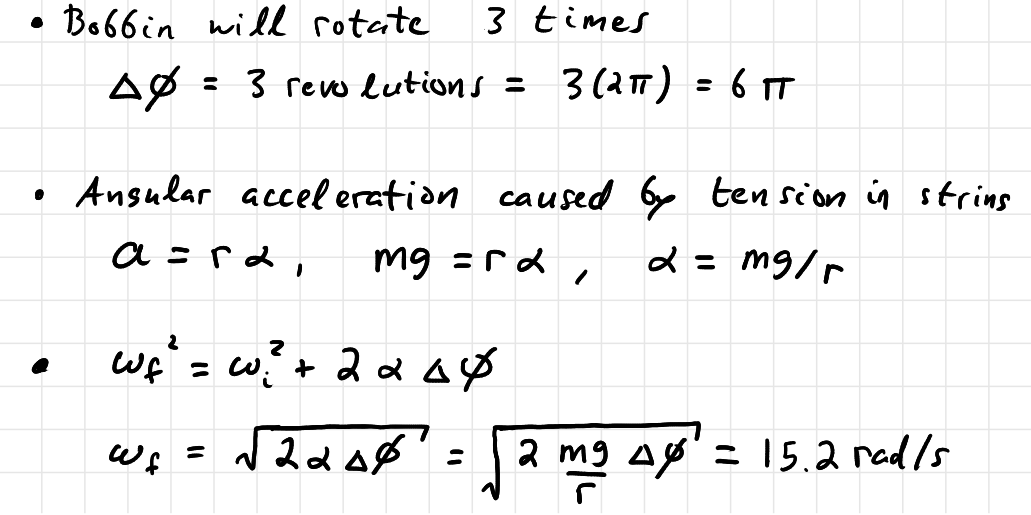 • Bobbin will rotate 3 times
Δφ = 3 revolutions = 3(2π) = 6π
• Angular acceleration caused by tension in string
a = rα, mg = rα, α = mg/r
• ωf² = ωi² + 2αΔφ
ωf = √(2αΔφ) = √(2 mg/r Δφ) = 15.2 rad/s